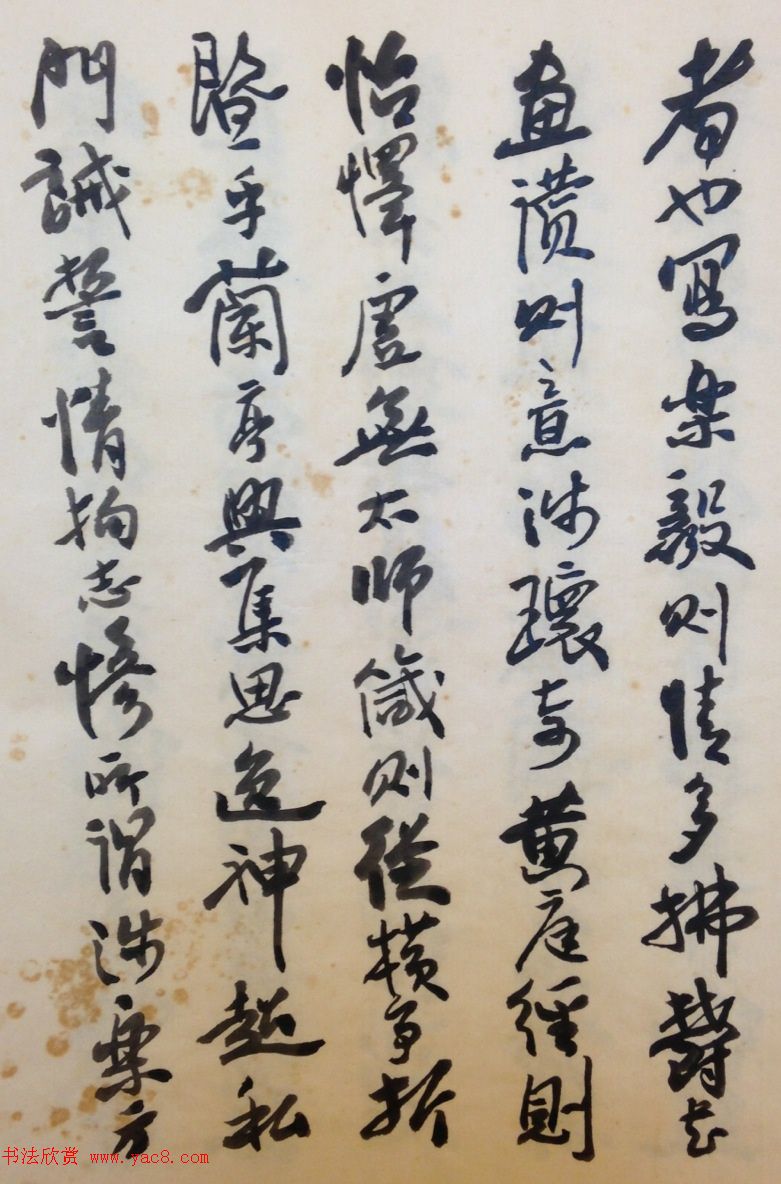 者也寫樂毅則情多拂鬱書
畫讚則意涉瓌奇黃庭經則
怡懌虛無太師箴則從橫爭折
暨乎蘭亭興集思逸神超私
門誡誓情拘志慘所謂涉樂方
书法欣赏 www.yac8.com